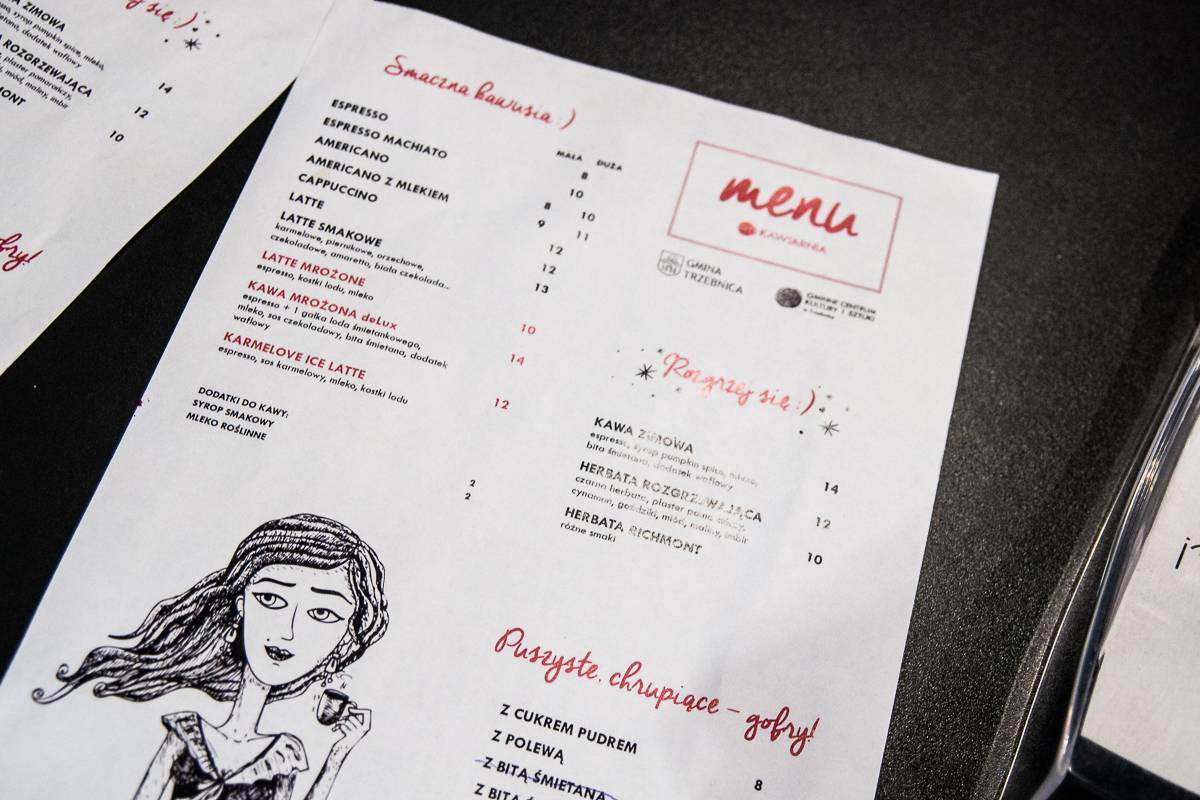 A ZIMOWA
14
12
10
Smaczna kawusia :)
MAŁA DUŻA
ESPRESSO 8
ESPRESSO MACHIATO 10
AMERICANO 8 10
AMERICANO Z MLEKIEM 9 11
CAPPUCCINO 12
LATTE 12
LATTE SMAKOWE 13
karmelowe, piernikowe, orzechowe,
czekoladowe, amaretto, biała czekolada...
LATTE MROŻONE 10
espresso, kostki lodu, mleko
KAWA MROŻONA deLux 14
espresso + 1 gałka loda śmietankowego,
mleko, sos czekoladowy, bita śmietana, dodatek
waflowy
KARMELOVE ICE LATTE 12
espresso, sos karmelowy, mleko, kostki lodu
DODATKI DO KAWY:
SYROP SMAKOWY 2
MLEKO ROŚLINNE 2
menu
KAWIARNIA
GMINA
TRZEBNICA
GMINNE CENTRUM
KULTURY I SZTUKI
Rozgrzej się :)
KAWA ZIMOWA 14
espresso, syrop pumpkin spice, mleko,
bita śmietana, dodatek waflowy
HERBATA ROZGRZEWAJĄCA 12
czarna herbata, plaster pomarańczy,
cynamon, goździki, miód, maliny, imbir
HERBATA RICHMONT 10
różne smaki
Puszyste, chrupiące - gofry!
Z CUKREM PUDREM 8
Z POLEWĄ
Z BITĄ ŚMIETANĄ
Z BITĄ